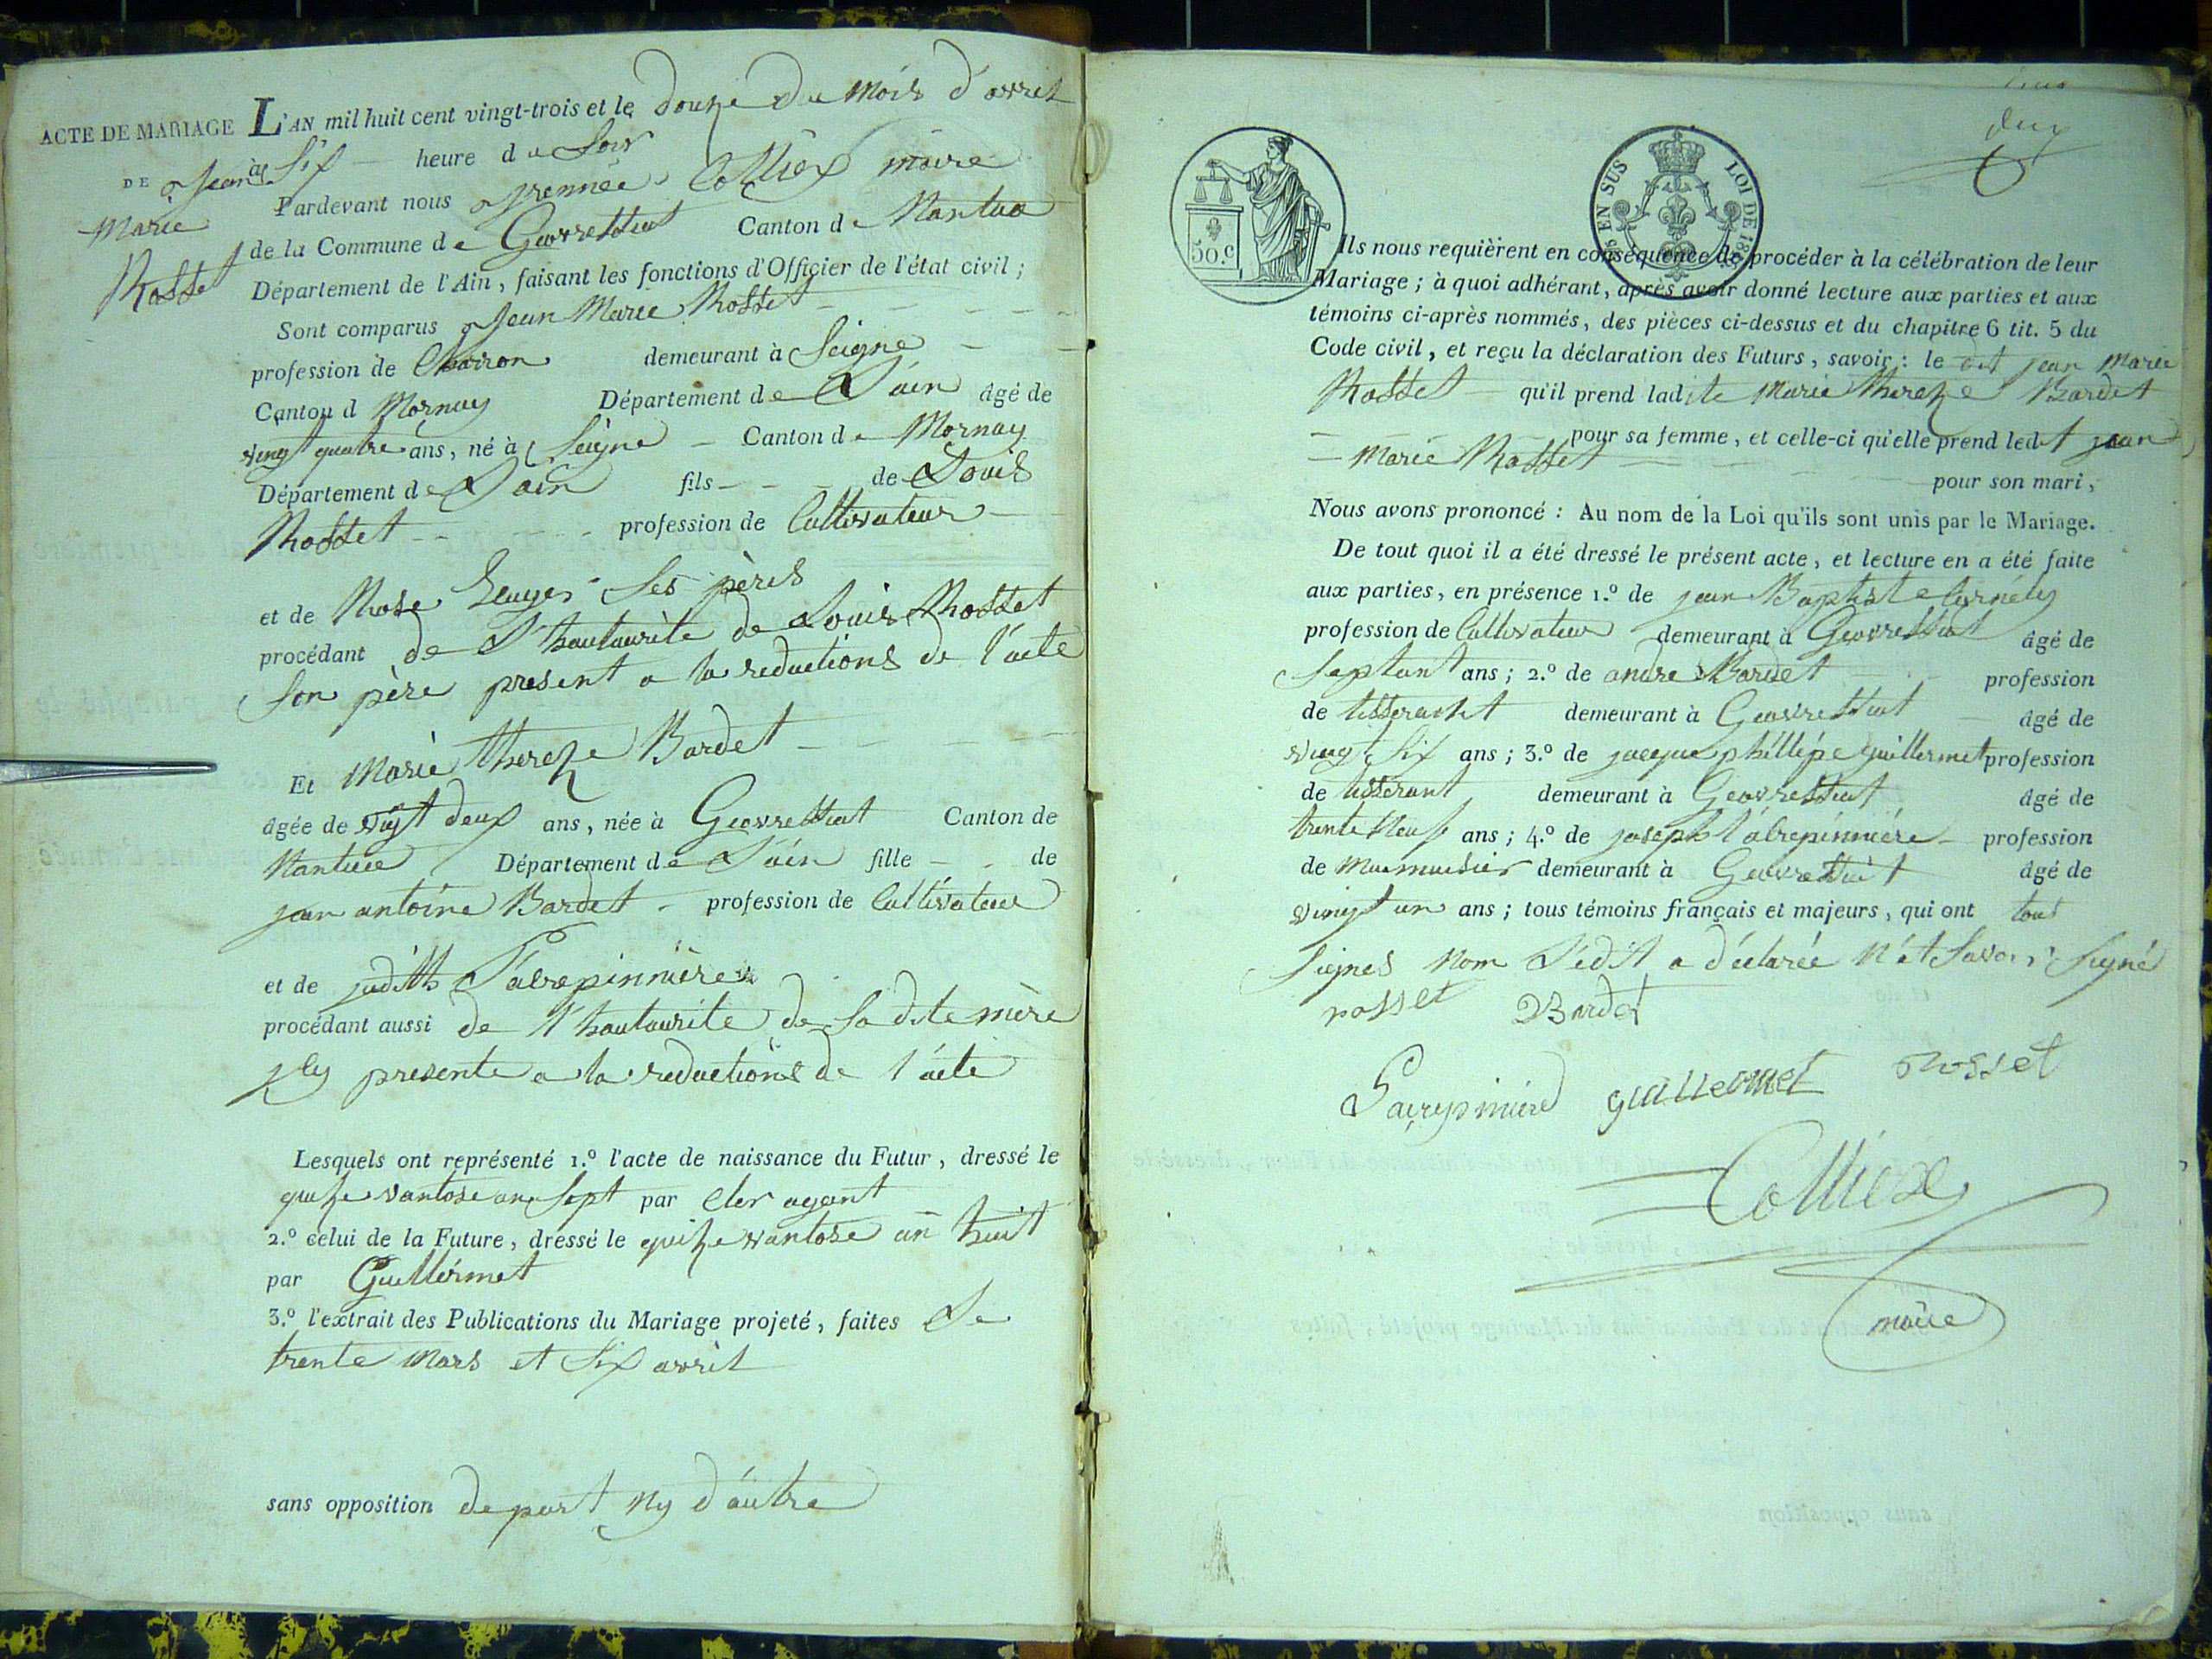 ACTE DE MARIAGE
DE Jean
Marie
Rosset
L'AN mil huit cent vingt-trois et le douze du mois d'avril
à Six heure du Soir
Pardevant nous Colliex maire
de la Commune de Geovressiat Canton de Nantua
Département de l'Ain, faisant les fonctions d'Officier de l'état civil;
Sont comparus Jean Marie Rosset
profession de Charron demeurant à Seigne
Canton d Mornay Département de L'ain âgé de
vingt quatre ans, né à Seigne Canton de Mornay
Département de L'ain fils de Louis
Rosset profession de Cultivateur
et de Rose Ses pères
procédant de L'hautaurite de Louis Rosset
Son père present a la reductions de l'acte
Et Marie thereze Bardet
âgée de vingt deux ans, née à Geovressiat Canton de
Nantua Département de L'ain fille de
jean antoine Bardet profession de Cultivateur
et de judith L'abrepinnière
procédant aussi de l'hautaurite de Sa dite mère
presente a la reductions de l'acte
Lesquels ont représenté 1.º l'acte de naissance du Futur, dressé le
quize vantose an Sept par agant
2.º celui de la Future, dressé le quize vantose an huit
par Guillermet
3.º l'extrait des Publications du Mariage projeté, faites Le
trente Mars et Six avril
sans opposition de part ny d'autre
50.C
EN SUS
LOI DE
deux
Ils nous requièrent en conséquence de procéder à la célébration de leur
Mariage; à quoi adhérant, après avoir donné lecture aux parties et aux
témoins ci-après nommés, des pièces ci-dessus et du chapitre 6 tit. 5 du
Code civil, et reçu la déclaration des Futurs, savoir: le dit jean Marie
Rosset qu'il prend ladite Marie thereze Bardet
pour sa femme, et celle-ci qu'elle prend ledit jean
Marie Rosset
pour son mari,
Nous avons prononcé: Au nom de la Loi qu'ils sont unis par le Mariage.
De tout quoi il a été dressé le présent acte, et lecture en a été faite
aux parties, en présence 1.º de jean Baptiste
profession de Cultivateur demeurant à Geovressiat âgé de
Septant ans; 2.º de andre Bardet profession
de demeurant à Geovressiat âgé de
vingt Six ans; 3.º de jacque phillipe guillermet profession
de tisserant demeurant à Geovressiat âgé de
trente Neuf ans; 4.º de joseph l'abrepinnière profession
de demeurant à Geovressiat âgé de
vingt un ans; tous témoins français et majeurs, qui ont tous
Signes Nom a déclarée Signé
rosset Bardet
guillermet rosset
Colliex
maire